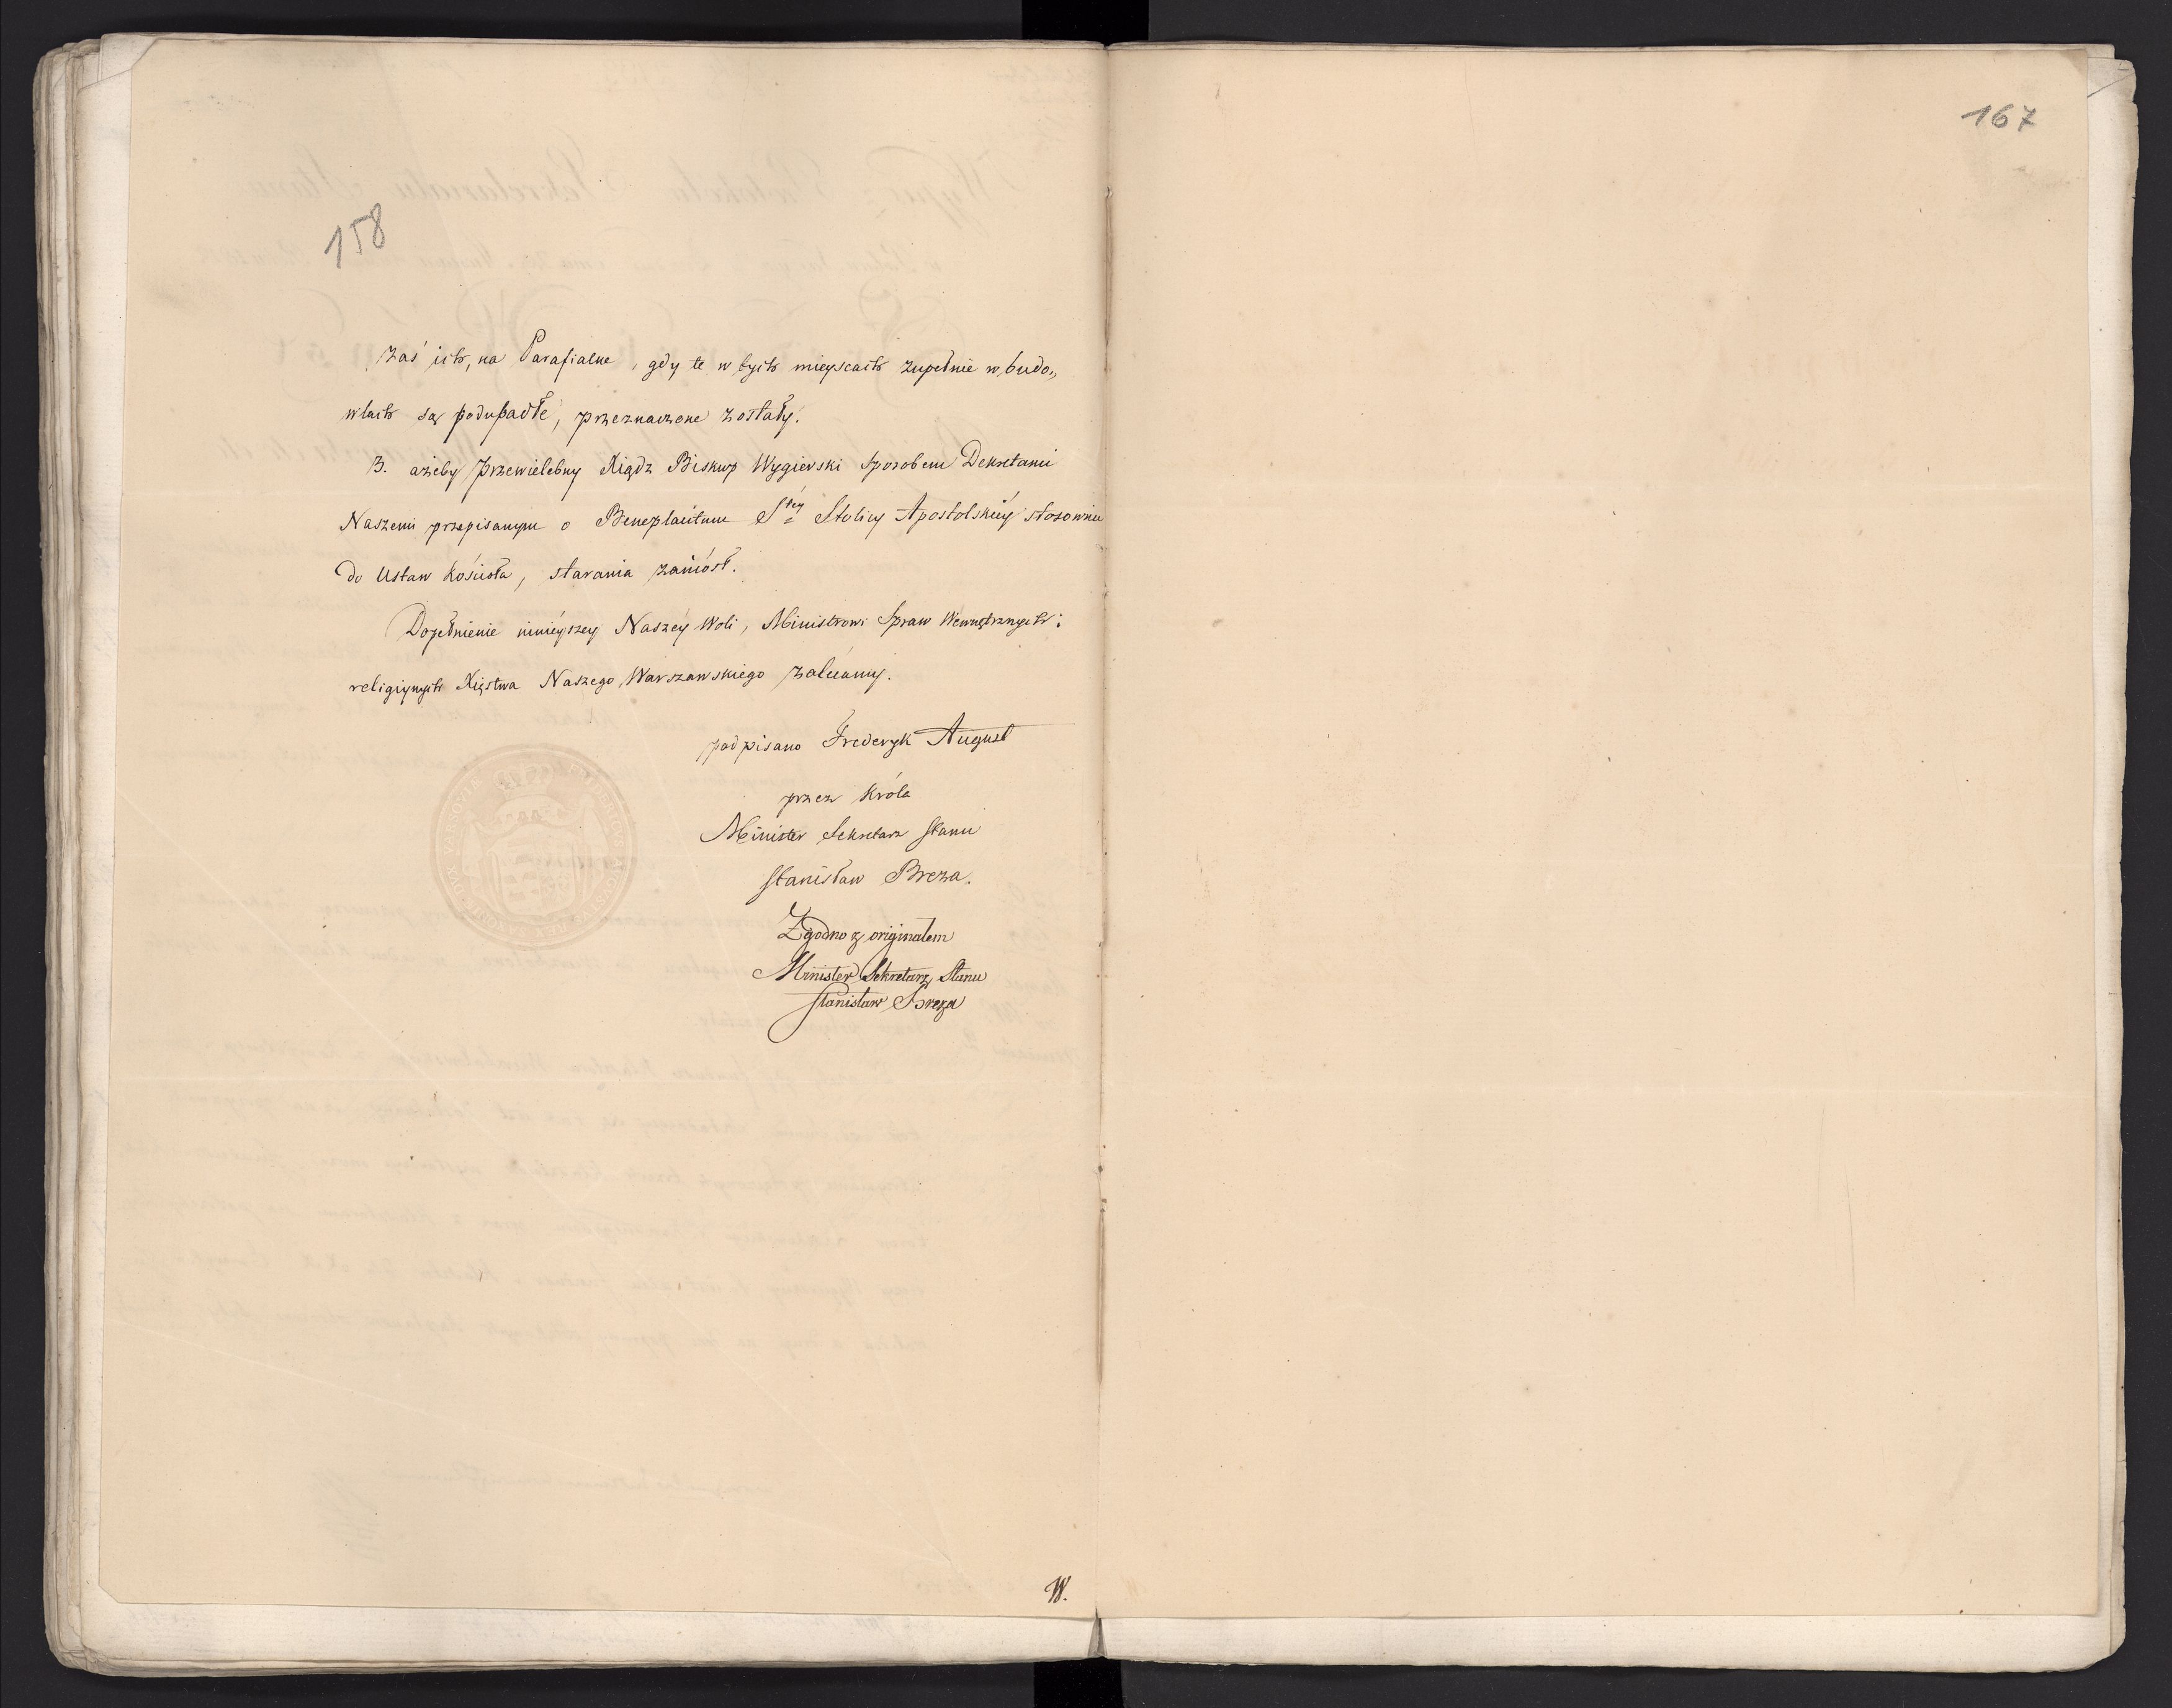 158
zaś ich, na Parafialne, gdy te w tych mieyscach zupełnie w budo„
wlach są podupadłe, przeznaczone zostały.
3. ażeby Przewielebny Xiądz Biskup Wygierski sposobem Dekretami
Naszemi przepisanym o Beneplacitum Stéy Stolicy Apostolskiéy stosownie
do Ustaw Kościoła, starania zaniósł.
Dopełnienie ninieyszey Naszéy Woli, Ministrowi Spraw Wewnętrznych i
religiynych Xięstwa Naszego Warszawskiego zalecamy.
podpisano Frederyk August
przez Króla
Minister Sekretarz Stanu
Stanisław Breza.
Zgodno z originałem
Minister Sekretarz Stanu
Stanisław Breza
W.
167